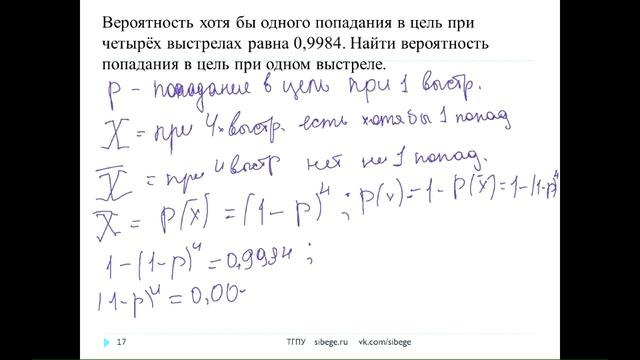 Вероятность хотя бы одного попадания в цель при
четырёх выстрелах равна 0,9984. Найти вероятность
попадания в цель при одном выстреле.
p – попадание в цель при 1 выстр.
X = при 4х выстр. есть хотя бы 1 попад
X̅ = при 4 выстр нет ни 1 попад.
X̅ = P(x̅) = (1-p)⁴ ; P(x) = 1 - P(x̅) = 1-(1-p)⁴
1-(1-p)⁴ = 0,9984 ;
(1-p)⁴ = 0,00
17 ТГПУ sibege.ru vk.com/sibege